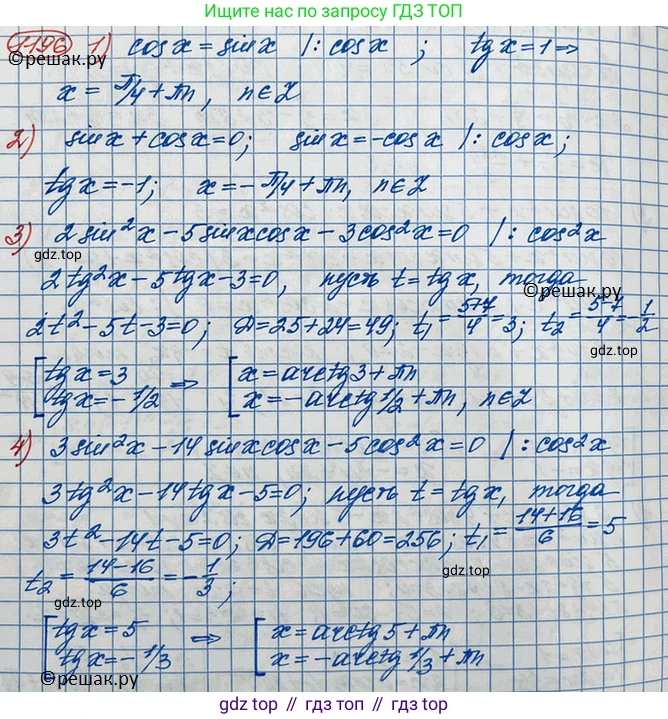 Ищите нас по запросу ГДЗ ТОП
1196 1) cos x = sin x |: cos x ; tg x = 1 ⇒
©решак.ру
x = π/4 + πn, n ∈ Z
2) sin x + cos x = 0; sin x = -cos x |: cos x;
tg x = -1; x = -π/4 + πn, n ∈ Z
3) 2 sin²x - 5 sin x cos x - 3 cos²x = 0 |: cos²x
гдз top
2 tg²x - 5 tg x - 3 = 0, пусть t = tg x, тогда
©решак.ру
2t² - 5t - 3 = 0; D = 25 + 24 = 49; t₁ = (5+7)/4 = 3; t₂ = (5-7)/4 = -1/2
гдз top
гдз top
[tg x = 3 ⇒ [x = arctg 3 + πn
tg x = -1/2 x = -arctg 1/2 + πn, n ∈ Z
4) 3 sin²x - 14 sin x cos x - 5 cos²x = 0 |: cos²x
гдз top
3 tg²x - 14 tg x - 5 = 0; пусть t = tg x, тогда
3t² - 14t - 5 = 0; D = 196 + 60 = 256; t₁ = (14+16)/6 = 5
гдз top
t₂ = (14-16)/6 = -1/3;
гдз top
[tg x = 5 ⇒ [x = arctg 5 + πn
tg x = -1/3 x = -arctg 1/3 + πn
гдз top
гдз top
©решак.ру
gdz top // гдз топ // гдз top